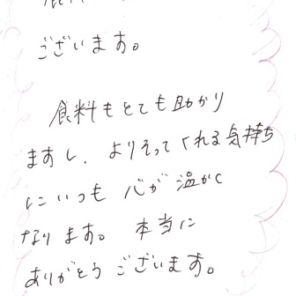 ございます。
食料もとても助かり
ますし、よりそってくれる気持ち
にいつも 心が温かく
なります。本当に
ありがとうございます。